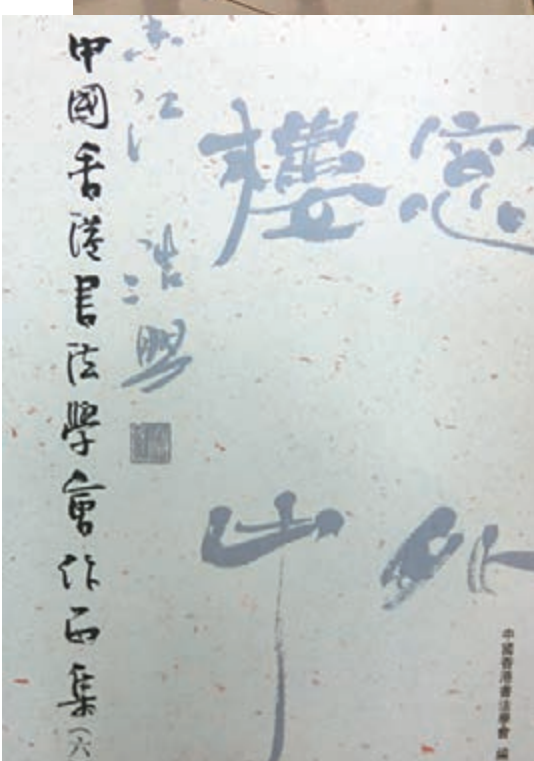 中國香港書法學會作品集(六
窓外
樓
中國香港書法學會 編